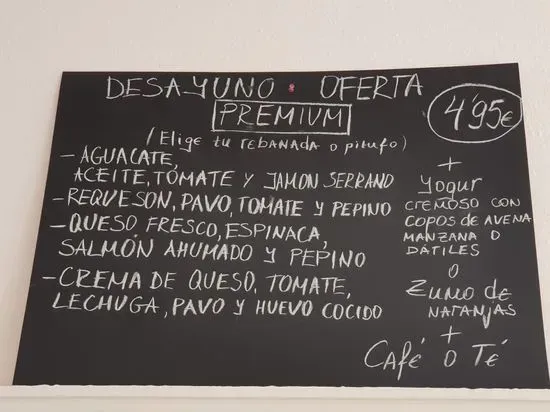 DESAYUNO · OFERTA
PREMIUM
4'95€
(Elige tu rebanada o pitufo)
- AGUACATE,
ACEITE, TOMATE Y JAMON SERRANO
- REQUESON, PAVO, TOMATE Y PEPINO
- QUESO FRESCO, ESPINACA,
SALMÓN AHUMADO Y PEPINO
- CREMA DE QUESO, TOMATE,
LECHUGA, PAVO Y HUEVO COCIDO
+
Yogur
CREMOSO CON
COPOS DE AVENA
MANZANA O
DÁTILES
O
Zumo de
NARANJAS
+
Café O Té